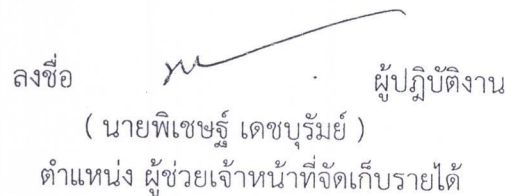 ลงชื่อ ผู้ปฏิบัติงาน
( นายพิเชษฐ์ เดชบุรัมย์ )
ตำแหน่ง ผู้ช่วยเจ้าหน้าที่จัดเก็บรายได้